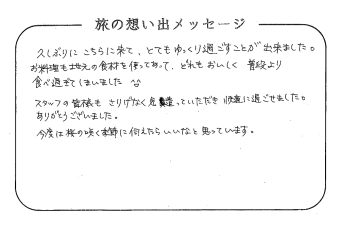 旅の想い出メッセージ
久しぶりにこちらに来て、とてもゆっくり過ごすことが出来ました。
お料理も地元の食材を使ってあって、どれもおいしく 普段より
食べ過ぎてしまいました
スタッフの皆様も さりげなく気遣っていただき 快適に過ごせました。
ありがとうございました。
今度は桜の咲く季節に伺えたらいいなと思っています。